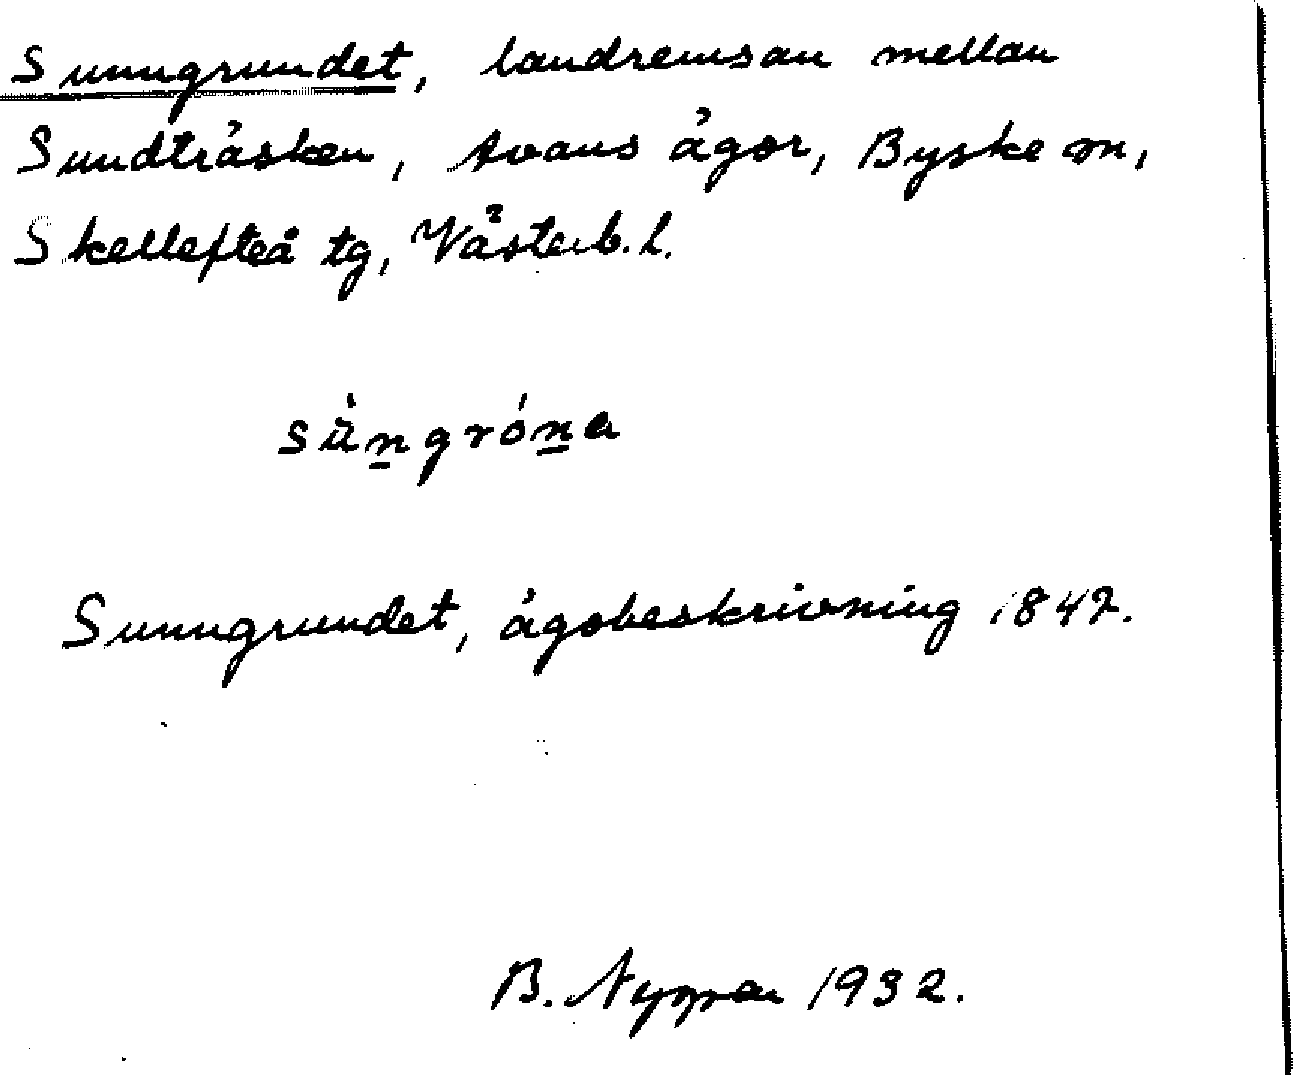 Sunngrundet, landremsan mellan
Sundträsken, Avans ägor, Byske sn,
Skellefteå tg, Västerb. l.
sùngróna
Sunngrundet, ägobeskrivning 1842.
B. Nyman 1932.